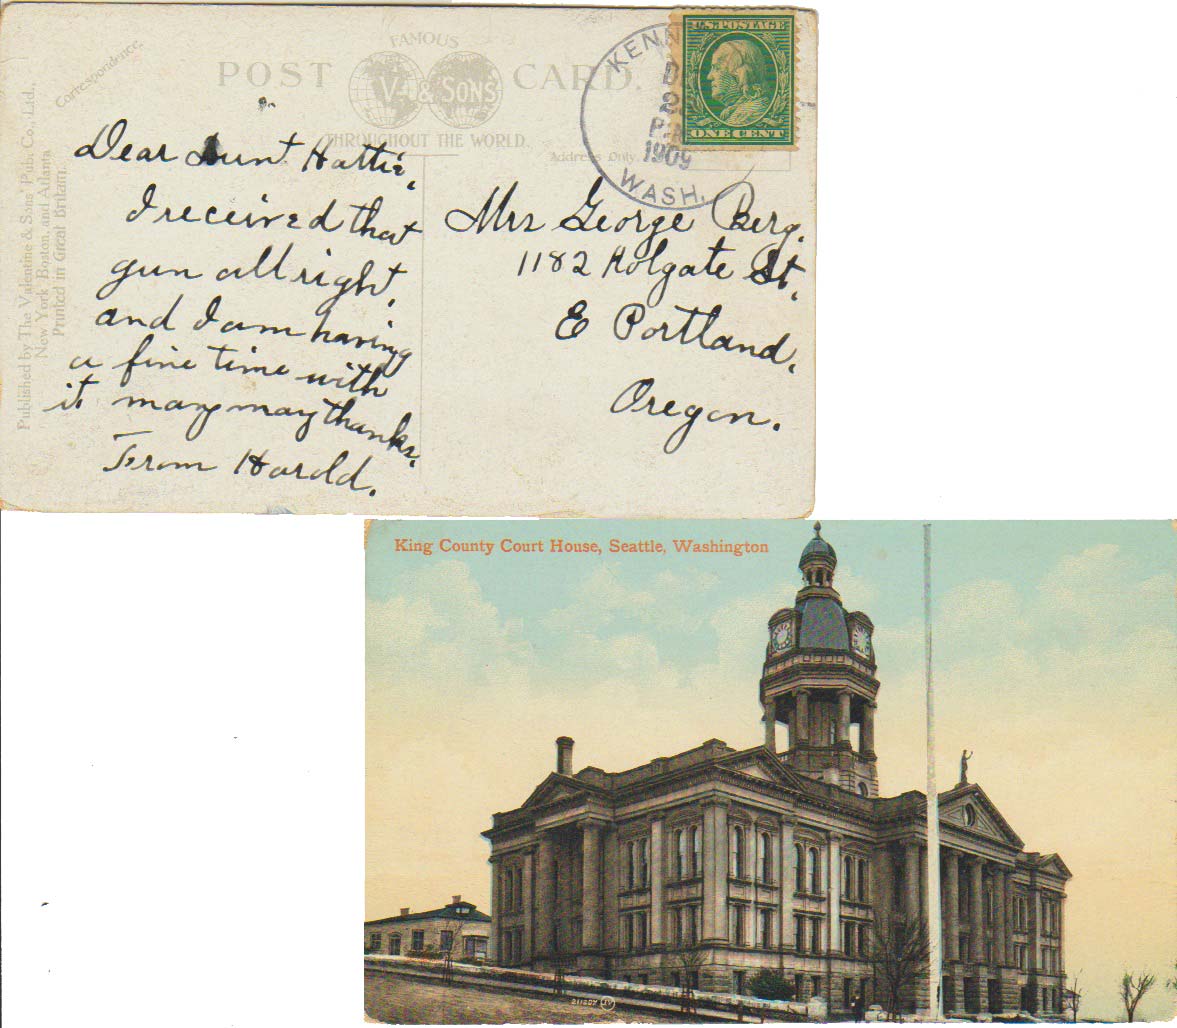 Correspondence.
POST CARD.
FAMOUS
V & SONS
THROUGHOUT THE WORLD.
Address Only.
Published by The Valentine & Sons' Pub. Co., Ltd.,
New York, Boston, and Atlanta
Printed in Great Britain.
KENN
D
2
P.M
1909
WASH.
U.S. POSTAGE
ONE CENT
Dear Aunt Hattie,
I received that
gun all right,
and I am having
a fine time with
it many many thanks.
From Harold.
Mrs George Berg.
1182 Holgate St,
E Portland,
Oregon.
King County Court House, Seattle, Washington
211207 (JV)